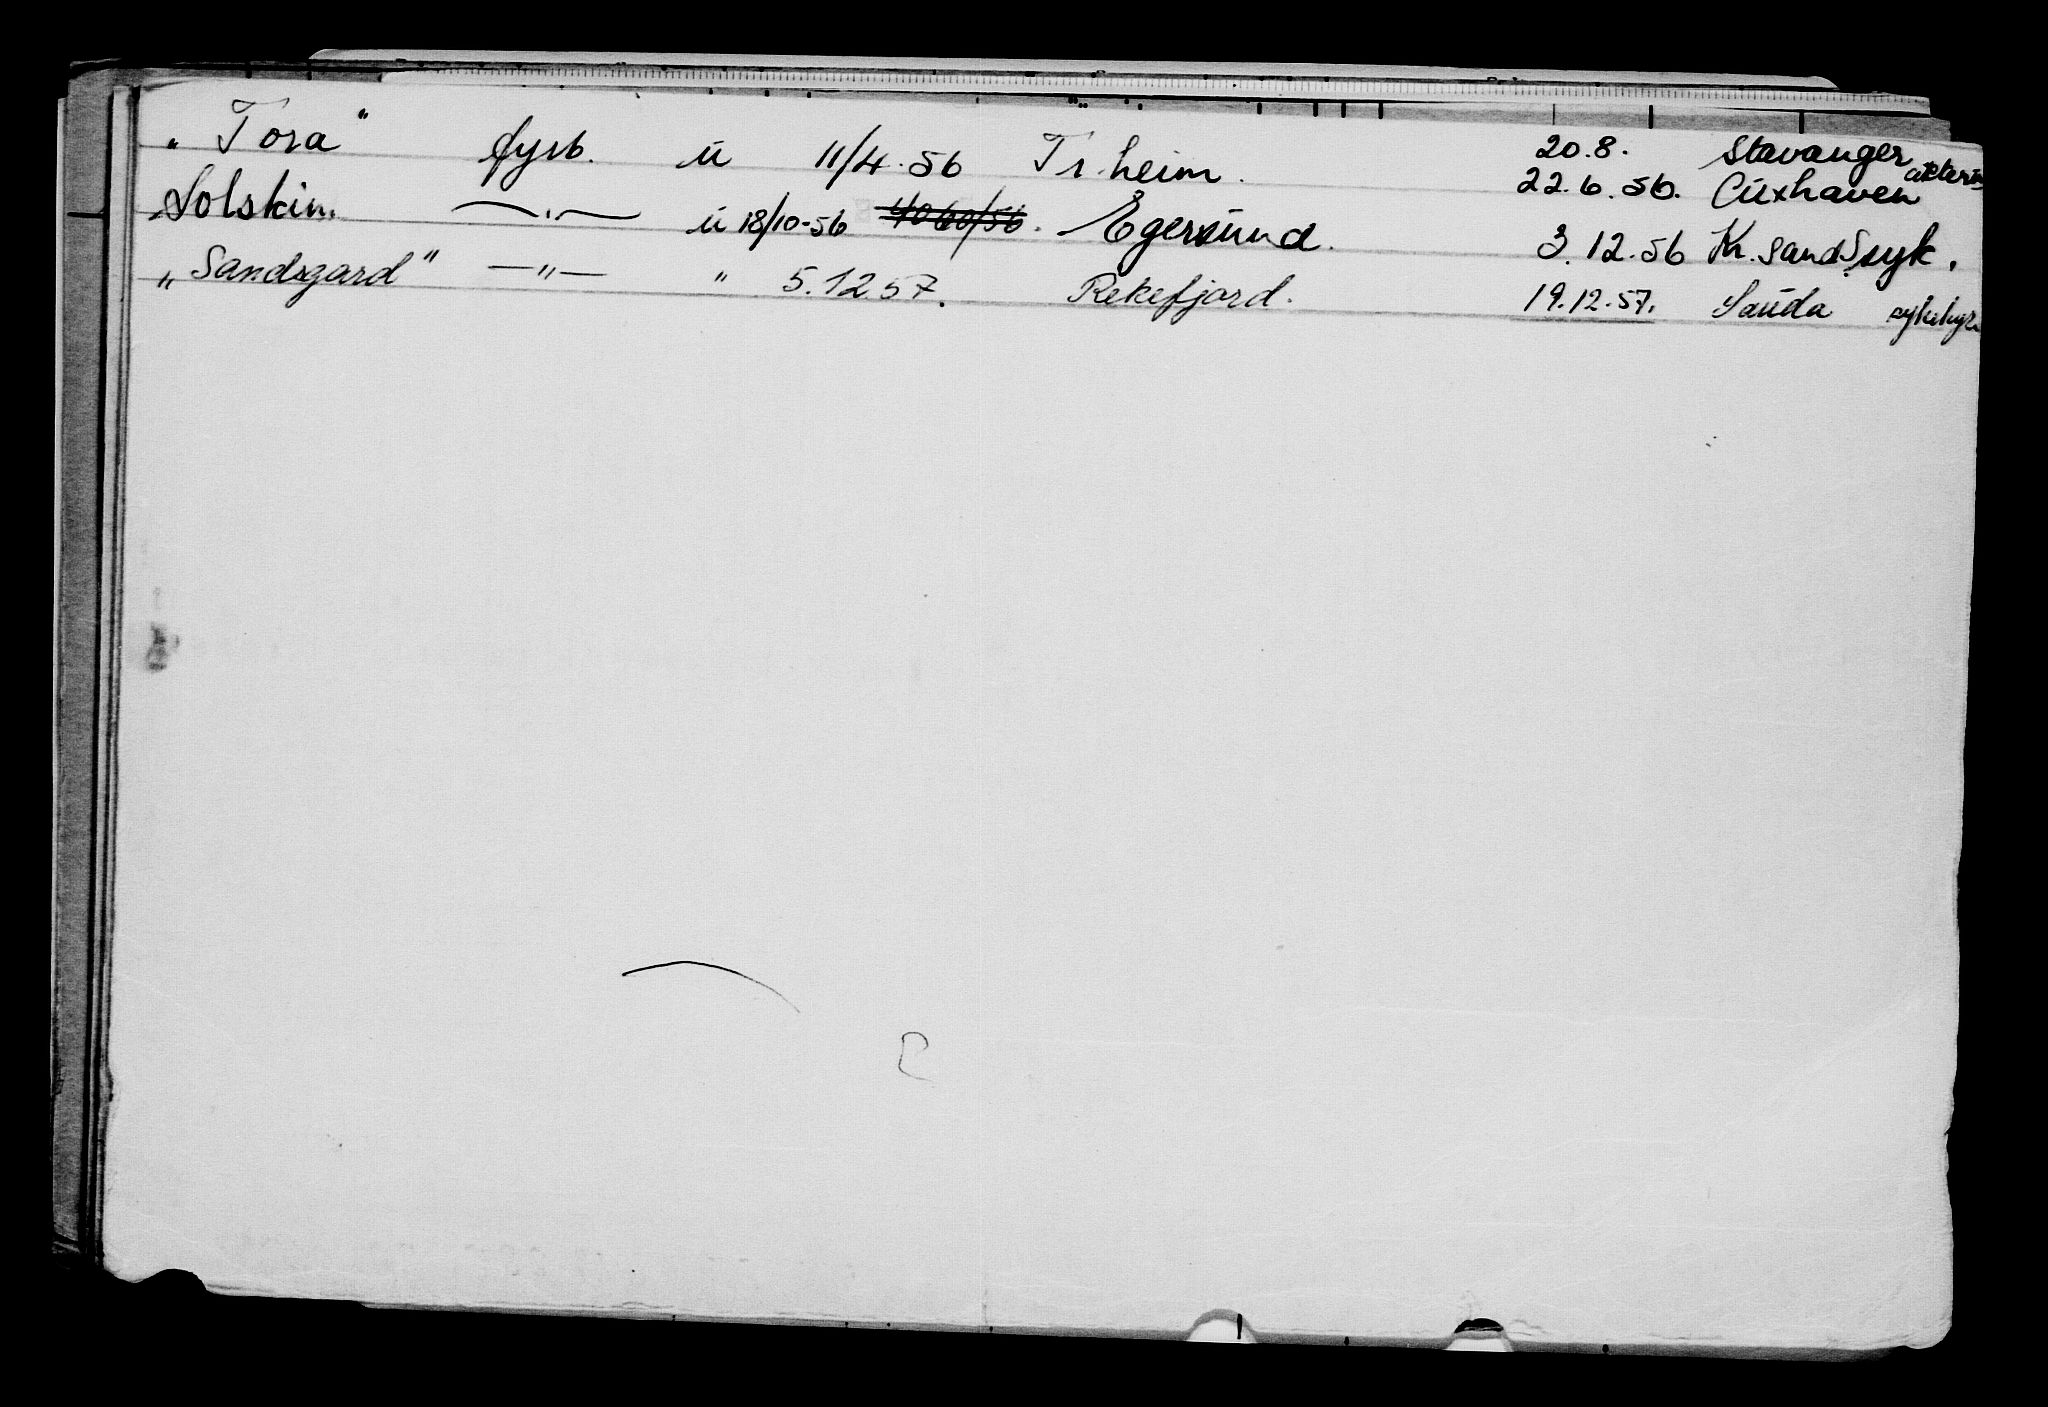 „ Tora" fyrb. u 11/4.56 Tr.heim. 20.8. Stavanger
22.6.56. Cuxhaven
„Solskin. —„— u 18/10-56 Egersund. 3.12.56 Kr.sand S syk.
„Sandsgard" —„— " 5.12.57. Rekefjord. 19.12.57. Sauda